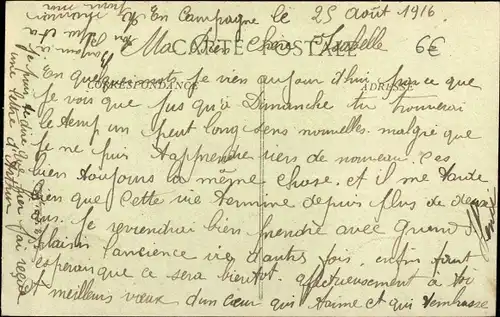 En Campagne le 25 Août 1916
Ma Bien chère Isabelle
CARTE POSTALE
6€
CORRESPONDANCE
ADRESSE
En quelques mots je vien aujour d'hui parce que
je vois que jus qu'à Dimanche tu trouverai
le temp un peut long sens nouvelles. malgré que
je ne puis t'apprendre riers de nouveau. C'es
bien toujours la même chose, et il me tarde
bien que cette vie termine depuis plus de deux
ans. Je reviendrai bien prendre avec Grand
plaisir l'ancienne vie d'autres fois, enfin faut
espérer que ce sera bientot affectueusement à toi
et meilleurs vœux d'un cœur qui t'aime et qui t'embrasse
Je puis te dire que hier j'ai reçue
une lettre d'Arthur